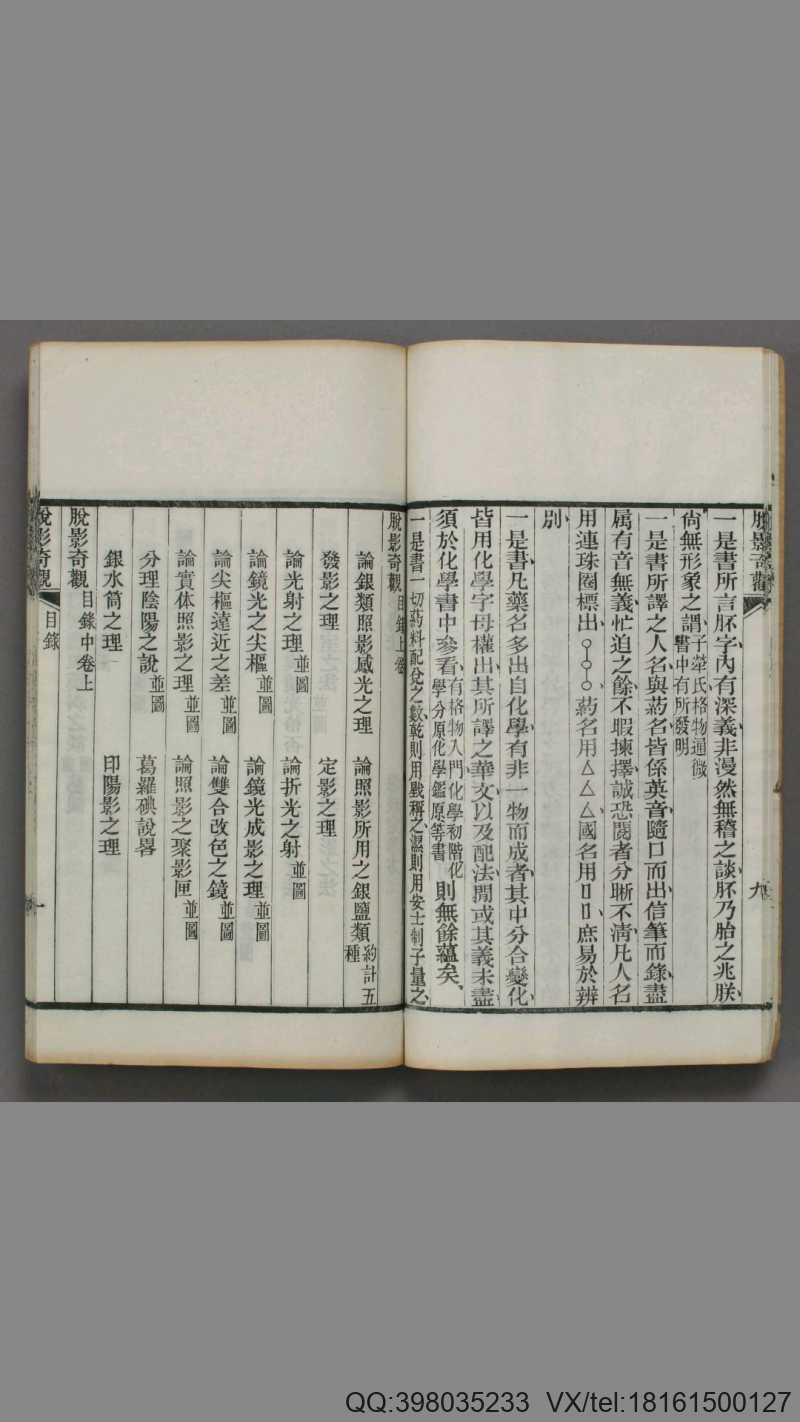 脫影奇觀
九
一是書所言胚字內有深義非漫然無稽之談胚乃胎之兆朕
尙無形象之謂子莘氏格物通微書中有所發明
一是書所譯之人名與葯名皆係英音隨口而出信筆而錄盡
属有音無義忙迫之餘不暇揀擇誠恐閱者分晰不淸凡人名
用連珠圈標出○-○-○葯名用△△△國名用▯▯庶易於辨
別
一是書凡藥名多出自化學有非一物而成者其中分合變化
皆用化學字母權出其所譯之華文以及配法間或其義未盡
須於化學書中參看有格物入門化學初階化學分原化學鑑原等書則無餘蘊矣
一是書一切葯料配合之數乾則用戥稱之濕則用安士制子量之
脫影奇觀目錄上卷
論銀類照影感光之理 論照影所用之銀鹽類約計五種
發影之理 定影之理
論光射之理並圖 論折光之射並圖
論鏡光之尖樞並圖 論鏡光成影之理並圖
論尖樞遠近之差並圖 論雙合改色之鏡並圖
論實体照影之理並圖 論照影之聚影匣並圖
分理陰陽之說並圖 葛羅碘說畧
銀水筒之理 印陽影之理
脫影奇觀目錄中卷上
脫影奇觀 目錄 一
QQ:398035233 VX/tel:18161500127